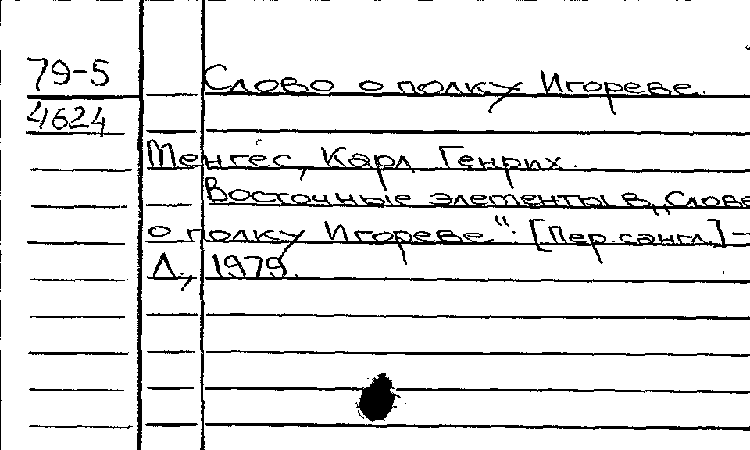 79-5 Слово о полку Игореве.
4624
Менгес, Карл Генрих.
Восточные элементы в „Слове
о полку Игореве“: [Пер. с англ.] –
Л., 1979.